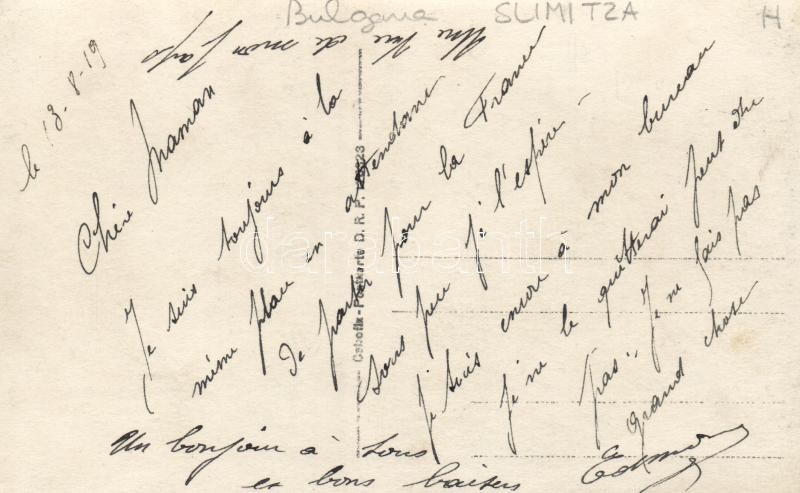 Bulgaria SLIMITZA H
Une vue de mon pays
le 13-8-19
Chère Maman
Je suis toujours à la
même place en attendant
de partir pour la France
sous peu je l'espère -
je suis encore à mon bureau
je ne le quitterai peut être
pas". Je ne fais pas
grand chose
Un bonjour à tous
et bons baisers
Edmond
Cebofix-Postkarte D. R. P.
darabanth